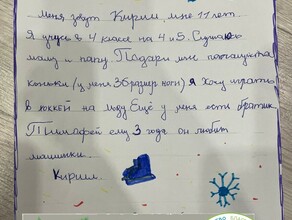 Меня зовут Кирилл, мне 11 лет.
Я учусь в 4 классе на 4 и 5. Слушаюсь
маму и папу. Подари мне пожалуйста
коньки (у меня 36 размер ноги) я хочу играть
в хоккей на льду Ещё у меня есть братик
Тимофей ему 3 года он любит
машинки.
Кирилл.